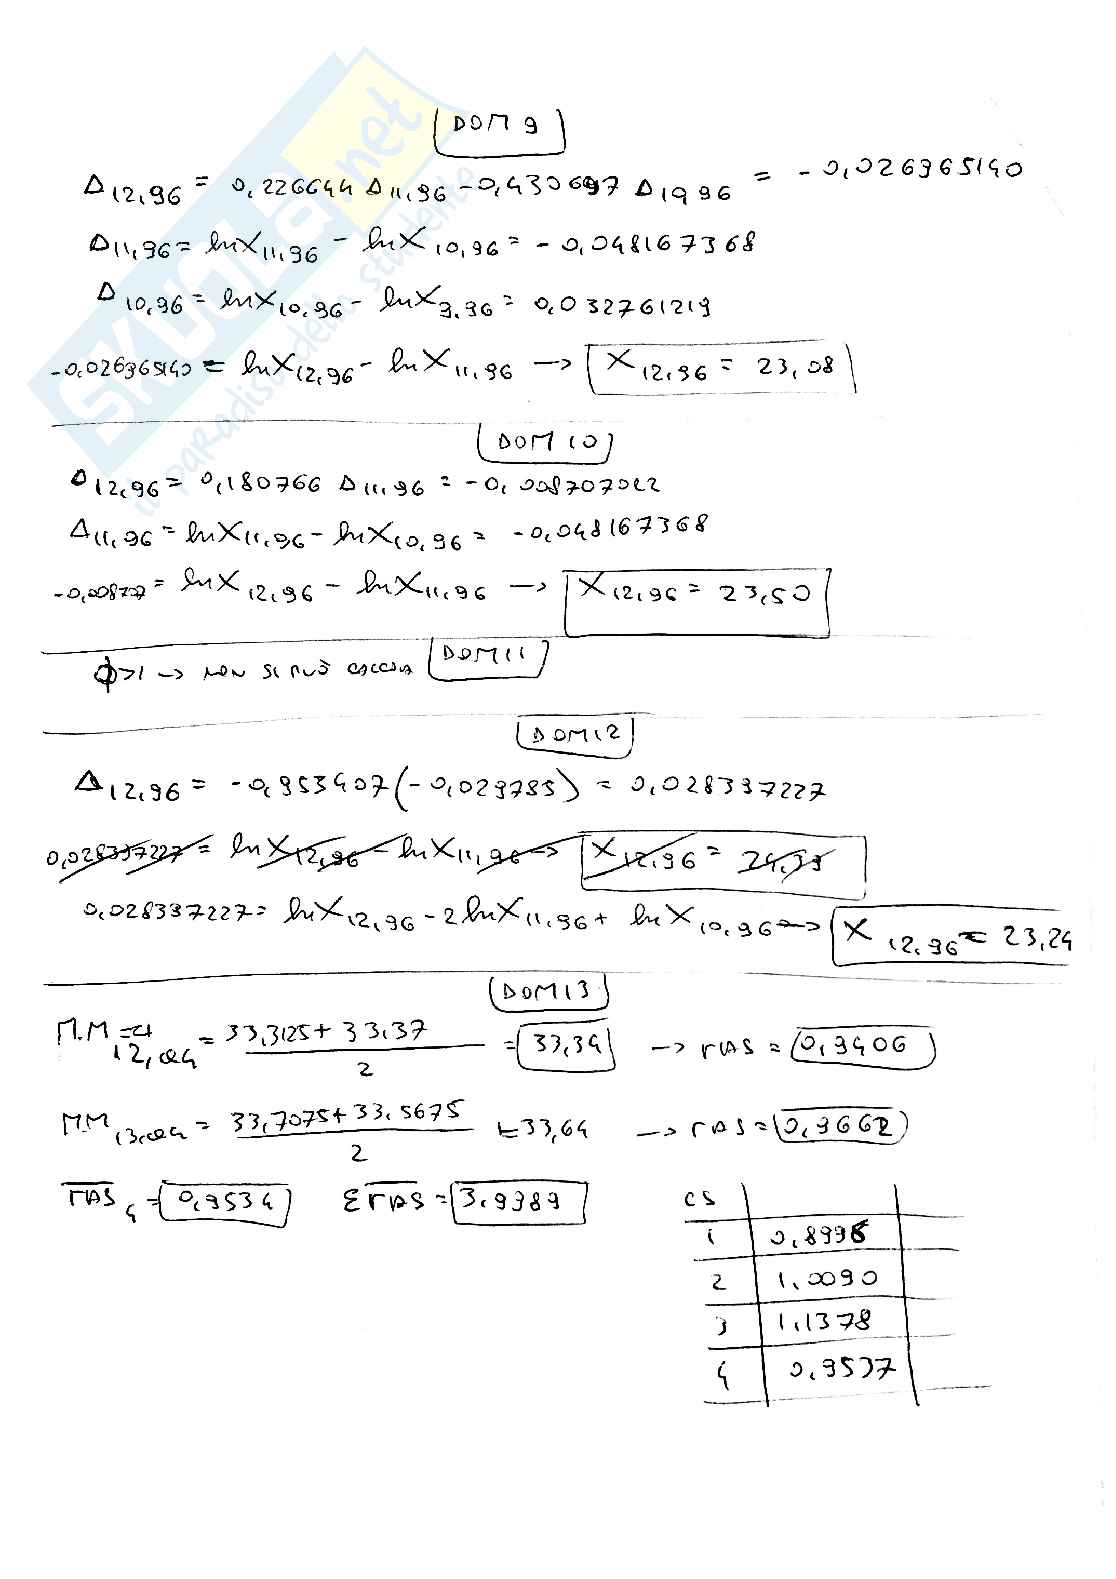 DOM 9
Δ12,96 = 0,226644 Δ11,96 - 0,430697 Δ10,96 = - 0,026365140
Δ11,96 = lnX11,96 - lnX10,96 = - 0,048167368
Δ10,96 = lnX10,96 - lnX9,96 = 0,032761219
-0,026365140 = lnX12,96 - lnX11,96 → X12,96 = 23,08
DOM 10
Δ12,96 = 0,180766 Δ11,96 = -0,008707022
Δ11,96 = lnX11,96 - lnX10,96 = -0,048167368
-0,008707 = lnX12,96 - lnX11,96 → X12,96 = 23,50
DOM 11
Φ>1 → NON SI PUÒ
DOM 12
Δ12,96 = -0,953407(-0,029785) = 0,028397227
0,028397227 = lnX12,96 - lnX11,96 → X12,96 = 24,39
0,028397227 = lnX12,96 - 2lnX11,96 + lnX10,96 → X12,96 = 23,24
DOM 13
M.M =4
33,3125 + 33,37 / 2 = 33,34 → ras = 0,9406
33,7075 + 33,5675 / 2 = 33,64 → ras = 0,9662
ras4 = 0,9534 Σras = 3,9389
CS
1 0,8998
2 1,0090
3 1,1378
4 0,9537
SKUOLA.net
il paradiso dello studente